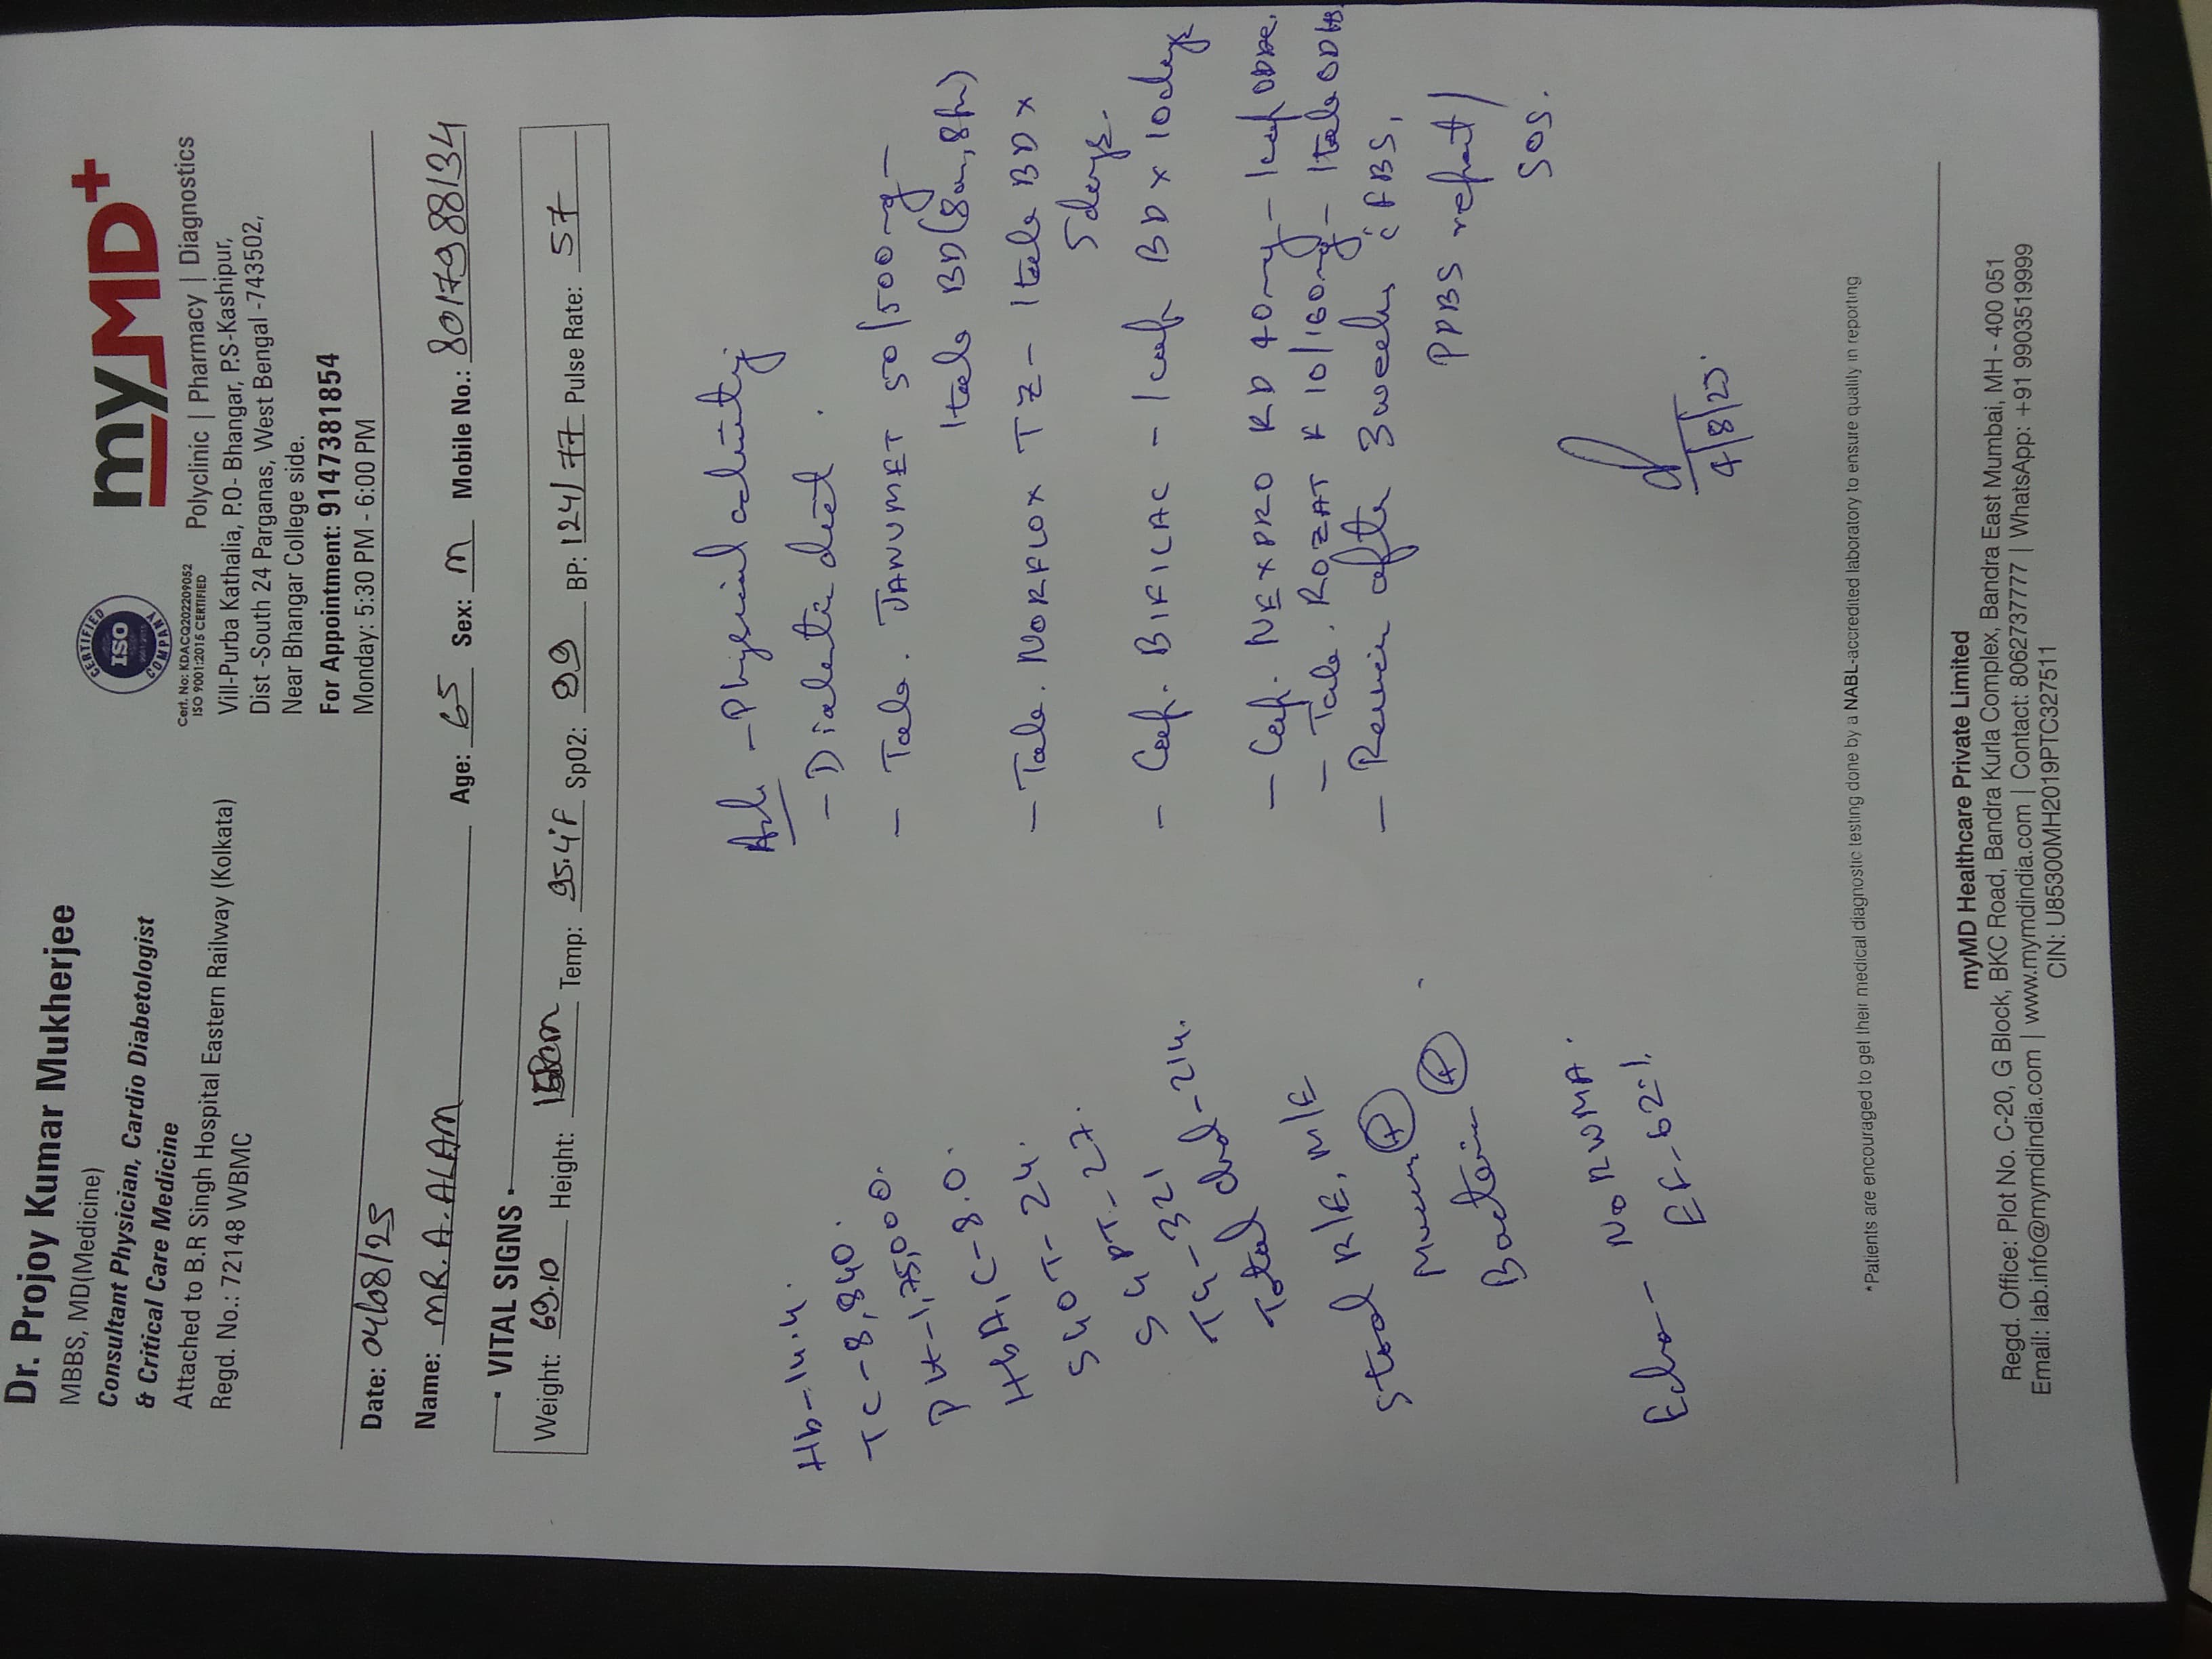 Dr. Projoy Kumar Mukherjee
MBBS, MD(Medicine)
Consultant Physician, Cardio Diabetologist
& Critical Care Medicine
Attached to B.R Singh Hospital Eastern Railway (Kolkata)
Regd. No.: 72148 WBMC
CERTIFIED ISO COMPANY
Cert. No: KDACQ202209052
ISO 9001:2015 CERTIFIED
myMD+
Polyclinic | Pharmacy | Diagnostics
Vill-Purba Kathalia, P.O- Bhangar, P.S-Kashipur,
Dist -South 24 Parganas, West Bengal -743502,
Near Bhangar College side.
For Appointment: 9147381854
Monday: 5:30 PM - 6:00 PM
Date: 04/08/25
Name: MR. A. ALAM Age: 65 Sex: M Mobile No.: 8017988134
VITAL SIGNS
Weight: 69.10 Height: Temp: 95.4°F SpO2: 99 BP: 124/77 Pulse Rate: 57
Hb-14.4.
TC-8,840.
Plt-1,75,000.
HbA1C-8.0.
SGOT-24.
SGPT-27.
TG-321
Total Chol-214.
Stool R/E, M/E
Mucus (+)
Bacteria (+)
Echo- No RWMA.
EF-62%
Adv -Physical activity
-Diabetic diet.
- Tab. JANUMET 50/500mg-
1tab BD(8am,8pm)
-Tab. NORFLOX TZ- 1tab BD x
5days.
- Cap. BIFILAC - 1cap BD x 10days
- Cap. NEXPRO RD 40mg- 1cap
- Tab. ROZAT F 10/160mg- 1tab
- Review after 3weeks c̄ FBS,
PPBS report/
SOS.
4/8/25.
*Patients are encouraged to get their medical diagnostic testing done by a NABL-accredited laboratory to ensure quality in reporting
myMD Healthcare Private Limited
Regd. Office: Plot No. C-20, G Block, BKC Road, Bandra Kurla Complex, Bandra East Mumbai, MH - 400 051
Email: lab.info@mymdindia.com | www.mymdindia.com | Contact: 8062737777 | WhatsApp: +91 9903519999
CIN: U85300MH2019PTC327511